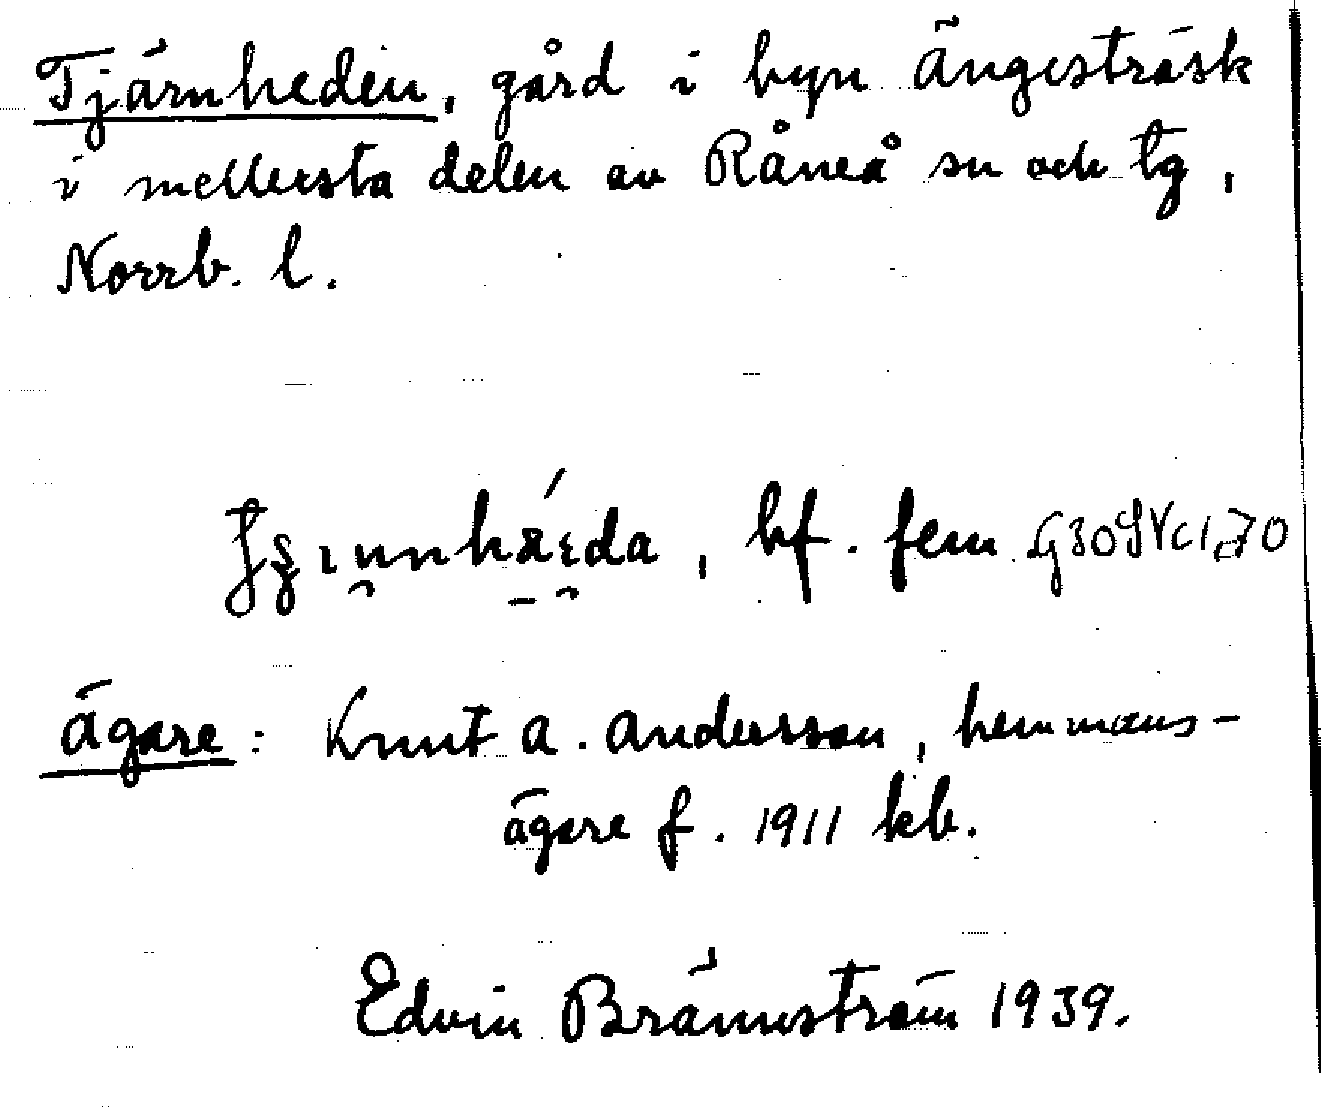 Tjärnheden, gård i byn Ängesträsk
i mellersta delen av Råneå sn och tg,
Norrb. l.
, bf. fem.
Ägare: Knut A. Andersson, hemmans-
ägare f. 1911 kb.
Edvin Brännström 1939.